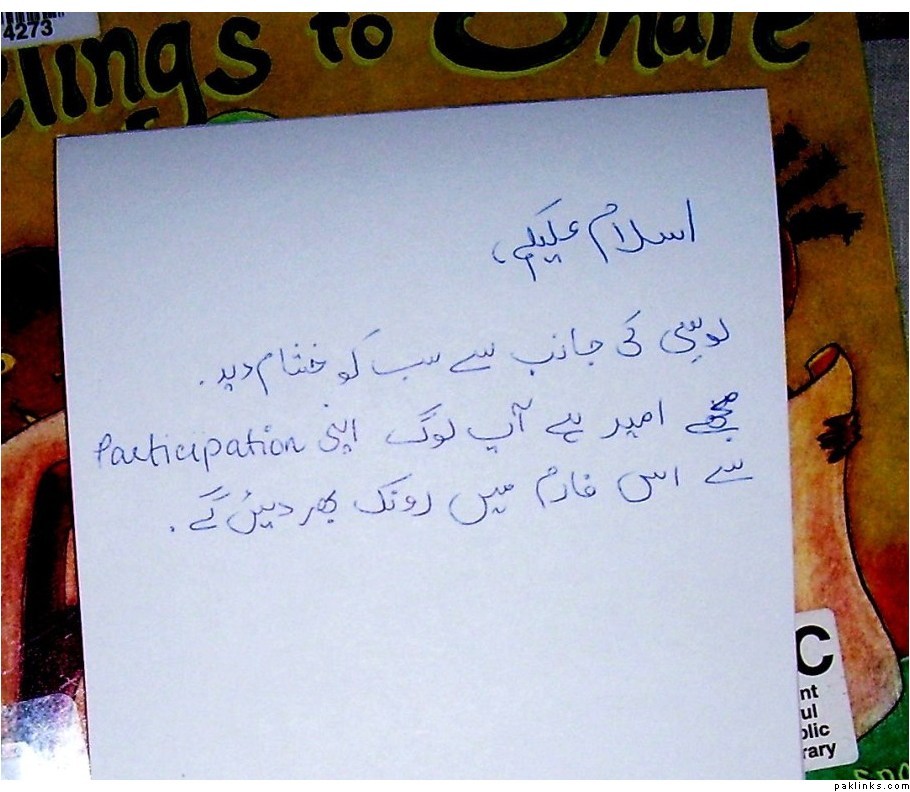 4273
elings to Share
اسلام علیکم،
لوسی کی جانب سے سب کو خشام دید.
مجھے امید ہے آپ لوگ اپنی Participation
سے اس فارم میں رونک بھر دیئں گے.
C
nt
ul
blic
rary
paklinks.com